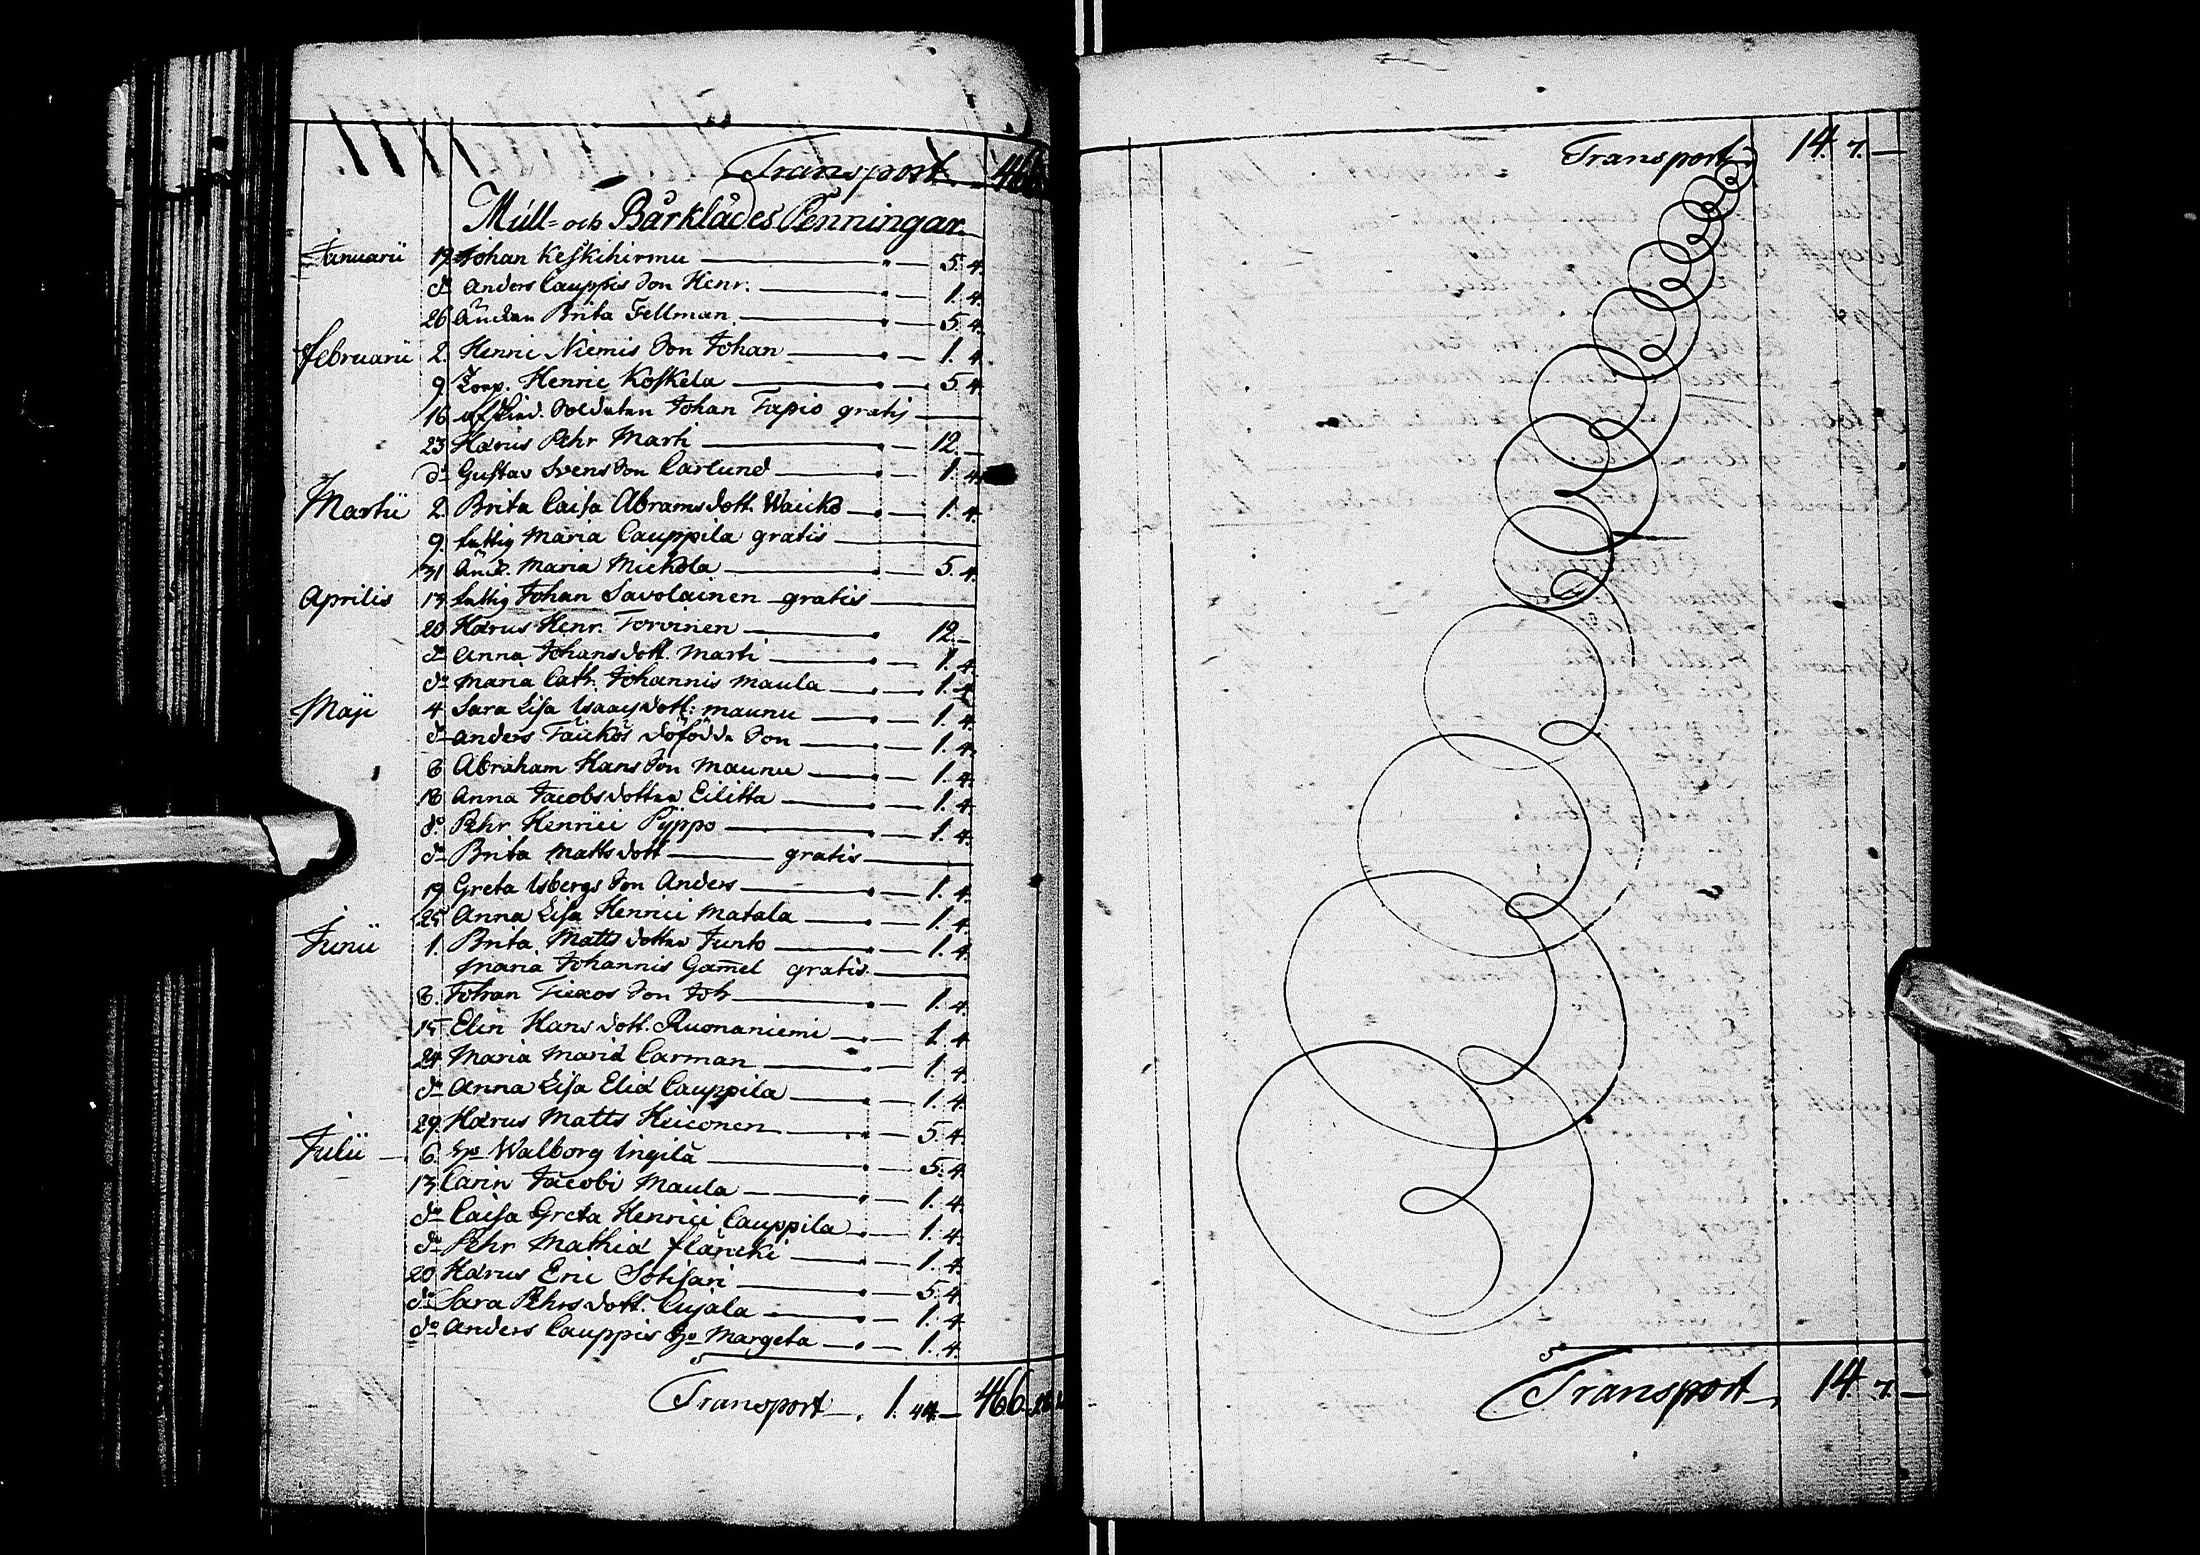 Transport 466.
Mull- och Bårklädes Penningar
Januarii 19 Johan Keskihirmu 5. 4.
do Anders Cauppis Son Henr. 1. 4.
26 Änckan Brita Fellman 5. 4.
Februarii 2. Henric Niemis Son Johan 1. 4.
9. Corp. Henric Koskela 5 4.
16 Afsked. Soldaten Johan Tapio gratis
23 Hdrus Pehr Marti 12. —
do Gustav Svens Son Carlund 1. 4.
Martii 2. Brita Caisa Abrams dott. Waicko 1. 4.
9. fattig Maria Cauppila gratis
31 Änck. Maria Mickola 5. 4.
Aprilis 13 fattig Johan Savolainen gratis
20 Hdrus Henr. Torvinen 12. —
do Anna Johans dott. Marti 1. 4.
do Maria Cath. Johannis Maula 1. 4.
Maji 4. Sara Lisa Isaacs dott: Maunu 1. 4.
do Anders Täickös döfödde Son 1. 4.
8 Abraham Hans Son Maunu 1. 4.
18 Anna Jacobs dotter Eilitta 1. 4.
do Pehr Henrici Pyppo 1. 4.
do Brita Matts dott gratis
19 Greta Isbergs Son Anders 1. 4.
25 Anna Lisa Henrici Matala 1. 4.
Junii 1. Brita Matts dotter Junto 1. 4.
Maria Johannis Gam̄el gratis
8. Johan Fiexos Son Joh 1. 4.
15 Elin Hans dott. Ruonaniemi 1. 4
24 Maria Mariæ Carman 1. 4.
do Anna Lisa Eliæ Cauppila 1. 4.
29. Hdrus Matts Heiconen 5. 4.
Julii 6. Walborg Ingilä 5. 4.
13 Carin Jacobi Maula 1. 4.
do Caisa Greta Henrici Cauppila 1. 4.
do Pehr Mathiæ 1. 4.
20 Hdrus Eric Sotisari 5. 4
do Sara Pehrs dott. Cujala 1. 4
do Anders Cauppis Margeta 1. 4.
Transport 1. 44 — 466.
Transport 14. 7. —
Transport 14. 7. —